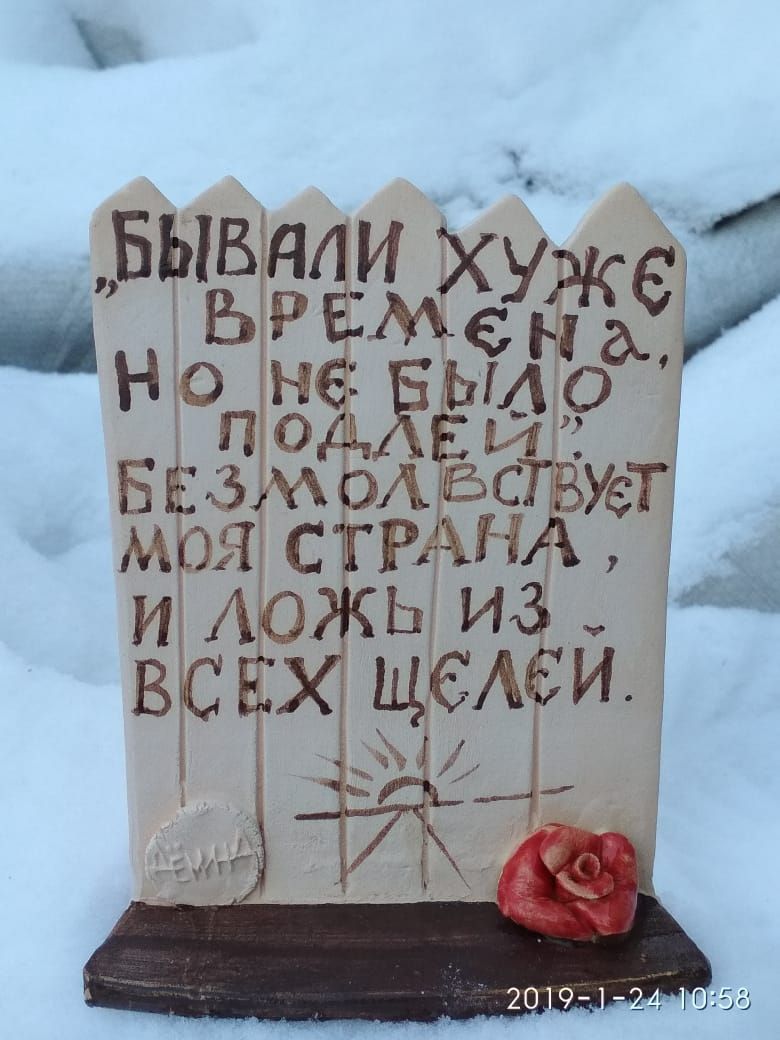 „БЫВАЛИ ХУЖЕ
ВРЕМЕНА,
НО НЕ БЫЛО
ПОДЛЕЙ”,
БЕЗМОЛВСТВУЕТ
МОЯ СТРАНА,
И ЛОЖЬ ИЗ
ВСЕХ ЩЕЛЕЙ.
ДЁМИНА
2019-1-24 10:58